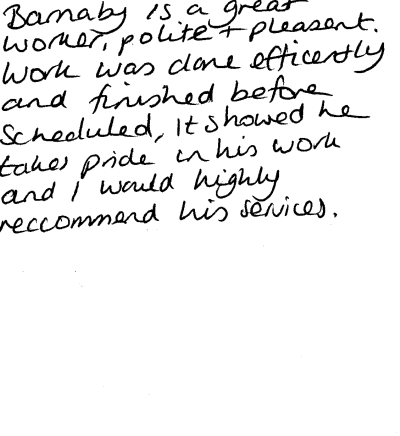 Barnaby is a great
worker, polite + pleasant.
Work was done efficently
and finished before
scheduled, It showed he
takes pride in his work
and I would highly
reccommend his services.